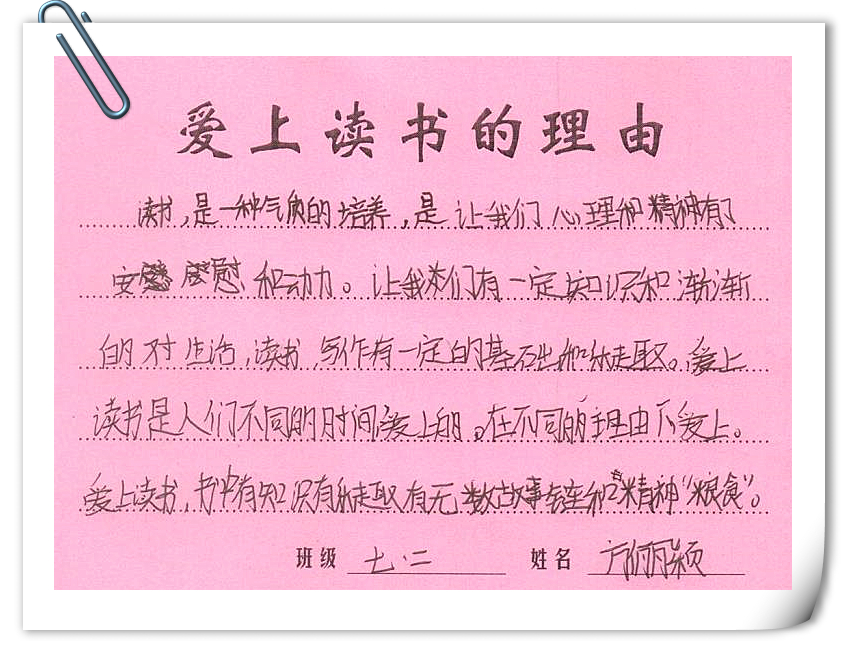 爱上读书的理由
读书,是一种气质的培养,是让我们心理和精神有了
安慰和动力。让我们有一定知识和渐渐
的对生活,读书,写作有一定的基础和乐趣。爱上
读书是人们不同的时间爱上的。在不同的理由下爱上。
爱上读书,书中有知识有乐趣有无数故事和精神“粮食”。
班级 七.二 姓名 方俪颖